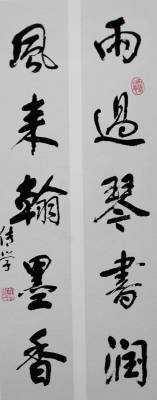 雨過琴書润
風来翰墨香